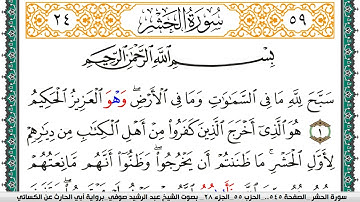 ٢٤ سُورَةُ الحَشْرِ ٥٩
بِسْمِ اللَّهِ الرَّحْمَٰنِ الرَّحِيمِ
سَبَّحَ لِلَّهِ مَا فِي السَّمَٰوَٰتِ وَمَا فِي الْأَرْضِ ۖ وَهْوَ الْعَزِيزُ الْحَكِيمُ
١ هُوَ الَّذِي أَخْرَجَ الَّذِينَ كَفَرُوا مِنْ أَهْلِ الْكِتَٰبِ مِن دِيَٰرِهِمْ
لِأَوَّلِ الْحَشْرِ ۚ مَا ظَنَنتُمْ أَن يَخْرُجُوا ۖ وَظَنُّوا أَنَّهُم مَّانِعَتُهُمْ
سورة الحشر. الصفحة ٥٤٥.. الحزب ٥٥. الجزء ٢٨. بصوت الشيخ عبد الرشيد صوفي. برواية أبي الحارث عن الكسائي